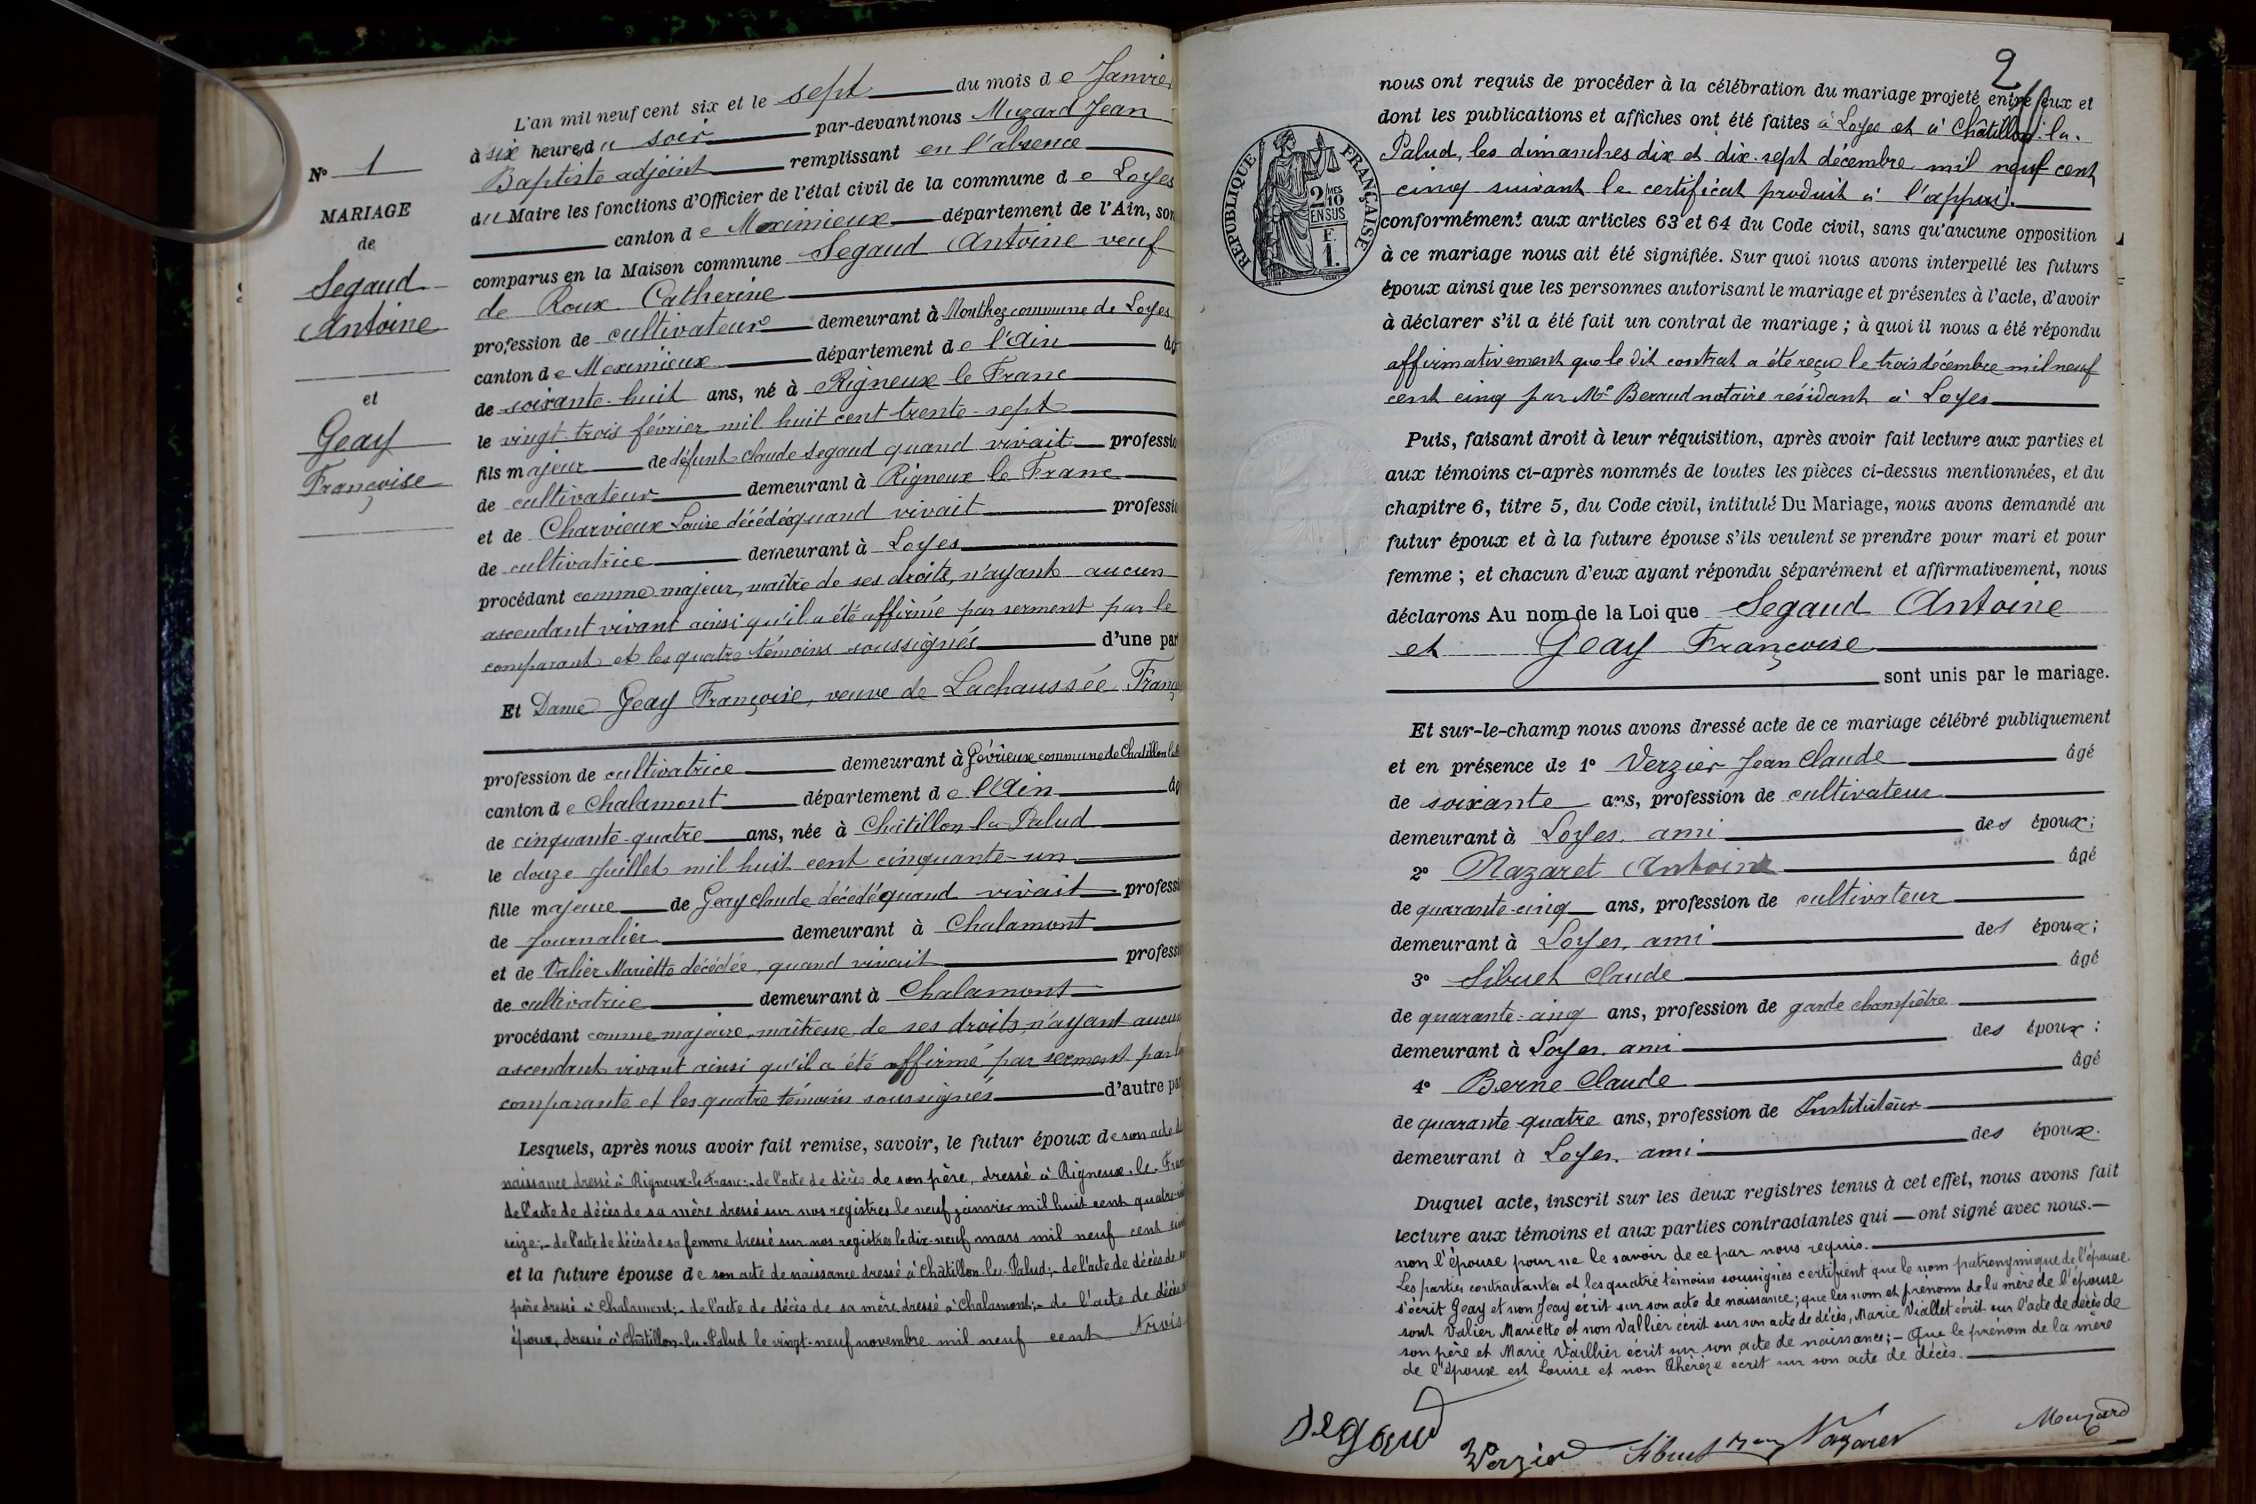 L'an mil neuf cent six et le sept du mois de Janvie
à six heures du soir par-devant nous Muzard Jean
Baptiste adjoint remplissant en l'absence
du Maire les fonctions d'Officier de l'état civil de la commune de Loyes
canton de Meximieux département de l'Ain, son
comparus en la Maison commune Segaud Antoine veuf
de Roux Catherine
profession de cultivateur demeurant à Monthoz commune de Loyes
canton de Meximieux département de l'Ain âg
de soixante-huit ans, né à Rigneux le Franc
le vingt-trois février mil huit cent trente-sept
fils majeur de défunt Claude Segaud quand vivait professio
de cultivateur demeurant à Rigneux le Franc
et de Charvieux Louise décédée quand vivait professio
de cultivatrice demeurant à Loyes
procédant comme majeur, maître de ses droits, n'ayant aucun
ascendant vivant ainsi qu'il a été affirmé par serment par le
comparant et les quatre témoins soussignés d'une par
Et Dame Geay Françoise, veuve de Lachaussée Franç
profession de cultivatrice demeurant à Gévrieux commune de Chatillon la
canton de Chalamont département de l'Ain âg
de cinquante-quatre ans, née à Châtillon-la-Palud
le douze juillet mil huit cent cinquante-un
fille majeure de Geay Claude décédé quand vivait professi
de journalier demeurant à Chalamont
et de Valier Mariette décédée, quand vivait professi
de cultivatrice demeurant à Chalamont
procédant comme majeure, maîtresse de ses droits, n'ayant aucun
ascendant vivant ainsi qu'il a été affirmé par serment par la
comparante et les quatre témoins soussignés d'autre par
Lesquels, après nous avoir fait remise, savoir, le futur époux de son acte de
naissance dressé à Rigneux-le-Franc; - de l'acte de décès de son père, dressé à Rigneux-le-Franc
de l'acte de décès de sa mère dressé sur nos registres le neuf janvier mil huit cent quatre-vin
seize; - de l'acte de décès de sa femme dressé sur nos registres le dix-neuf mars mil neuf cent cinq
et la future épouse de son acte de naissance dressé à Châtillon-la-Palud; - de l'acte de décès de son
père dressé à Chalamont; - de l'acte de décès de sa mère, dressé à Chalamont; - de l'acte de décès
époux, dressé à Châtillon-la-Palud le vingt-neuf novembre mil neuf cent trois
N° 1
MARIAGE
de
Segaud
Antoine
et
Geay
Françoise
2
nous ont requis de procéder à la célébration du mariage projeté entre eux et
dont les publications et affiches ont été faites à Loyes et à Châtillon-la-
Palud, les dimanches dix et dix-sept décembre mil neuf cent
cinq suivant le certificat produit à l'appui.
conformément aux articles 63 et 64 du Code civil, sans qu'aucune opposition
à ce mariage nous ait été signifiée. Sur quoi nous avons interpellé les futurs
époux ainsi que les personnes autorisant le mariage et présentes à l'acte, d'avoir
à déclarer s'il a été fait un contrat de mariage ; à quoi il nous a été répondu
affirmativement que le dit contrat a été reçu le trois décembre mil neuf
cent cinq par Me Beraud notaire résidant à Loyes
Puis, faisant droit à leur réquisition, après avoir fait lecture aux parties et
aux témoins ci-après nommés de toutes les pièces ci-dessus mentionnées, et du
chapitre 6, titre 5, du Code civil, intitulé Du Mariage, nous avons demandé au
futur époux et à la future épouse s'ils veulent se prendre pour mari et pour
femme ; et chacun d'eux ayant répondu séparément et affirmativement, nous
déclarons Au nom de la Loi que Segaud Antoine
et Geay Françoise
sont unis par le mariage.
Et sur-le-champ nous avons dressé acte de ce mariage célébré publiquement
et en présence de 1° Verzier Jean Claude âgé
de soixante ans, profession de cultivateur
demeurant à Loyes, ami des époux ;
2° Nazaret Antoine âgé
de quarante-cinq ans, profession de cultivateur
demeurant à Loyes, ami des époux ;
3° Sibuet Claude âgé
de quarante-cinq ans, profession de garde champêtre
demeurant à Loyes, ami des époux ;
4° Berne Claude âgé
de quarante quatre ans, profession de Instituteur
demeurant à Loyes, ami des époux.
Duquel acte, inscrit sur les deux registres tenus à cet effet, nous avons fait
lecture aux témoins et aux parties contractantes qui — ont signé avec nous.—
non l'épouse pour ne le savoir de ce par nous requis.
Les parties contractantes et les quatre témoins soussignés certifient que le nom patronymique de l'épouse
s'écrit Geay et non Jeay écrit sur son acte de naissance; que les nom et prénom de la mère de l'épouse
sont Valier Mariette et non Vallier écrit sur son acte de décès, Marie Viallet écrit sur l'acte de décès de
son père et Marie Vaillier écrit sur son acte de naissance; - Que le prénom de la mère
de l'époux est Louise et non Thérèze écrit sur son acte de décès.
Segaud
Verzier Sibuet Nazaret Muzard
RÉPUBLIQUE FRANÇAISE
2 MES
10
EN SUS
F.
1.